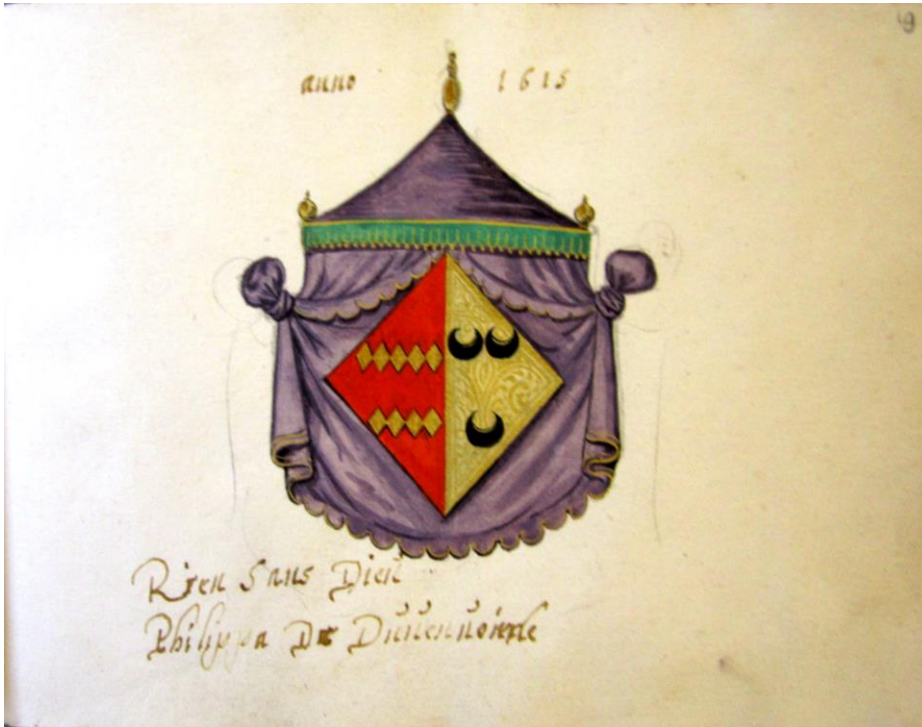 anno 1615
Rien Sans Dieu
Philippa De Duuenuoirde